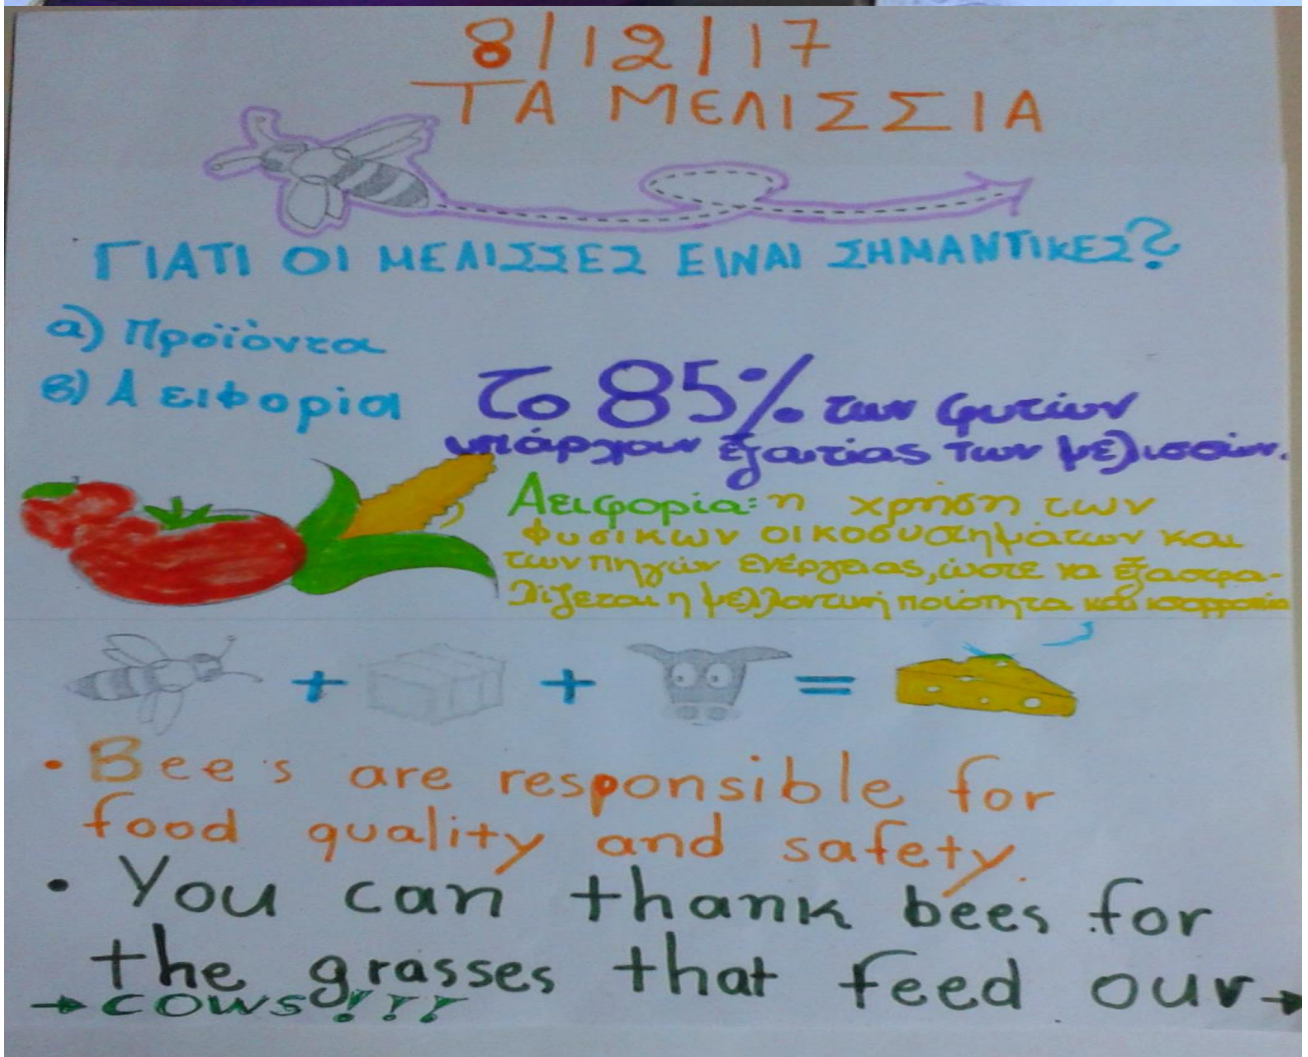 8/12/17
ΤΑ ΜΕΛΙΣΣΙΑ
ΓΙΑΤΙ ΟΙ ΜΕΛΙΣΣΕΣ ΕΙΝΑΙ ΣΗΜΑΝΤΙΚΕΣ?
α) Προϊόντα
β) Αειφορία
το 85% των φυτών
υπάρχουν εξαιτίας των μελισσών.
Αειφορία: η χρήση των
φυσικών οικοσυστημάτων και
των πηγών ενέργειας, ώστε να εξασφα-
λίζεται η μελλοντική ποιότητα και ισορροπία
+ + =
• Bee's are responsible for
food quality and safety.
• You can thank bees for
the grasses that feed our→
→cows!!!